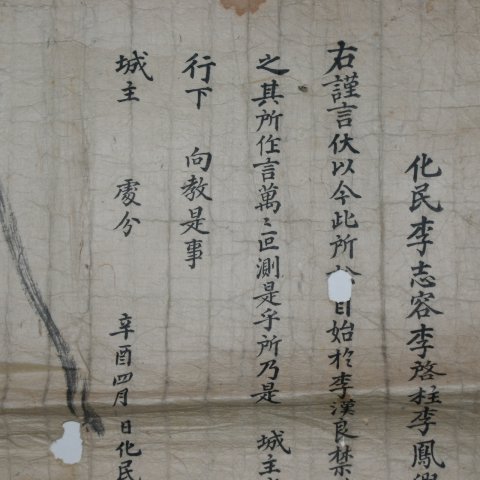 化民李志容李啓柱李鳳
右謹言伏以今此所 自始於李漢良禁
之其所任言萬〻叵測是乎所乃是 城主
行下 向教是事
城主 處分
辛酉四月 日化民